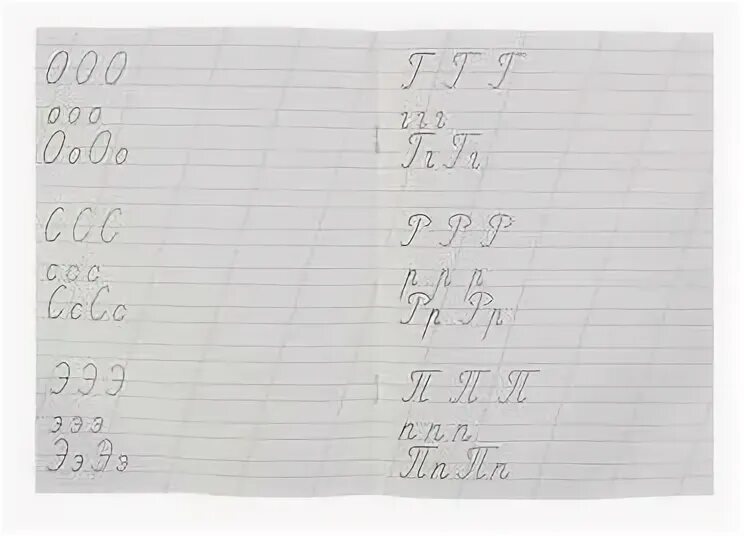 О О О
о о о
Оо Оо
С С С
с с с
Сс Сс
Э Э Э
э э э
Ээ Ээ
Г Г Г
г г г
Гг Гг
Р Р Р
р р р
Рр Рр
П П П
п п п
Пп Пп